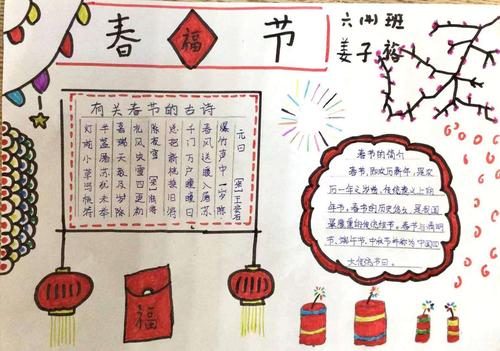 春 福 节
六(4)班
姜子
有关春节的古诗
元日
[宋]王安石
爆竹声中一岁除
春风送暖入屠苏
千门万户曈曈日
总把新桃换旧符
除夜雪
[宋]陆游
北风吹雪四更初
嘉瑞天教及岁除
半盏屠苏犹未举
灯前小草写桃符
春节的简介
春节,即农历新年,是农
历一年之岁首,传统意义上的
年节。春节的历史悠久,是我国
最隆重的传统佳节。春节与清明
节、端午节、中秋节并称为中国四
大传统节日。
福